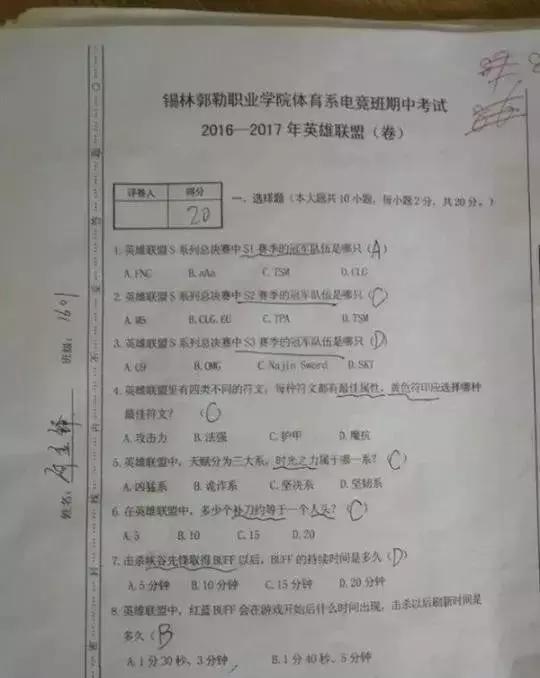 锡林郭勒职业学院体育系电竞班期中考试
2016—2017年英雄联盟（卷）
评卷人 得分
20
一、选择题（本大题共10小题，每小题2分，共20分。）
1. 英雄联盟S系列总决赛中S1赛季的冠军队伍是哪只（A）
A. FNC B. aAa C. TSM D. CLG
2. 英雄联盟S系列总决赛中S2赛季的冠军队伍是哪只（C）
A. M5 B. CLG.EU C. TPA D. TSM
3. 英雄联盟S系列总决赛中S3赛季的冠军队伍是哪只（D）
A. C9 B. OMG C. Najin Sword D. SKT
4. 英雄联盟里有四类不同的符文，每种符文都有最佳属性，黄色符印应选择哪种
最佳符文？（C）
A. 攻击力 B. 法强 C. 护甲 D. 魔抗
5. 英雄联盟中，天赋分为三大系，时光之力属于哪一系？（C）
A. 凶猛系 B. 诡诈系 C. 坚决系 D. 坚韧系
6. 在英雄联盟中，多少个补刀约等于一个人头？（C）
A. 5 B. 10 C. 15 D. 20
7. 击杀峡谷先锋取得BUFF以后，BUFF的持续时间是多久（D）
A. 5分钟 B. 10分钟 C. 15分钟 D. 20分钟
8. 英雄联盟中，红蓝BUFF会在游戏开始后什么时间出现，击杀以后刷新时间是
多久（B
A. 1分30秒、3分钟 B. 1分40秒、5分钟
班级：1601
姓名：